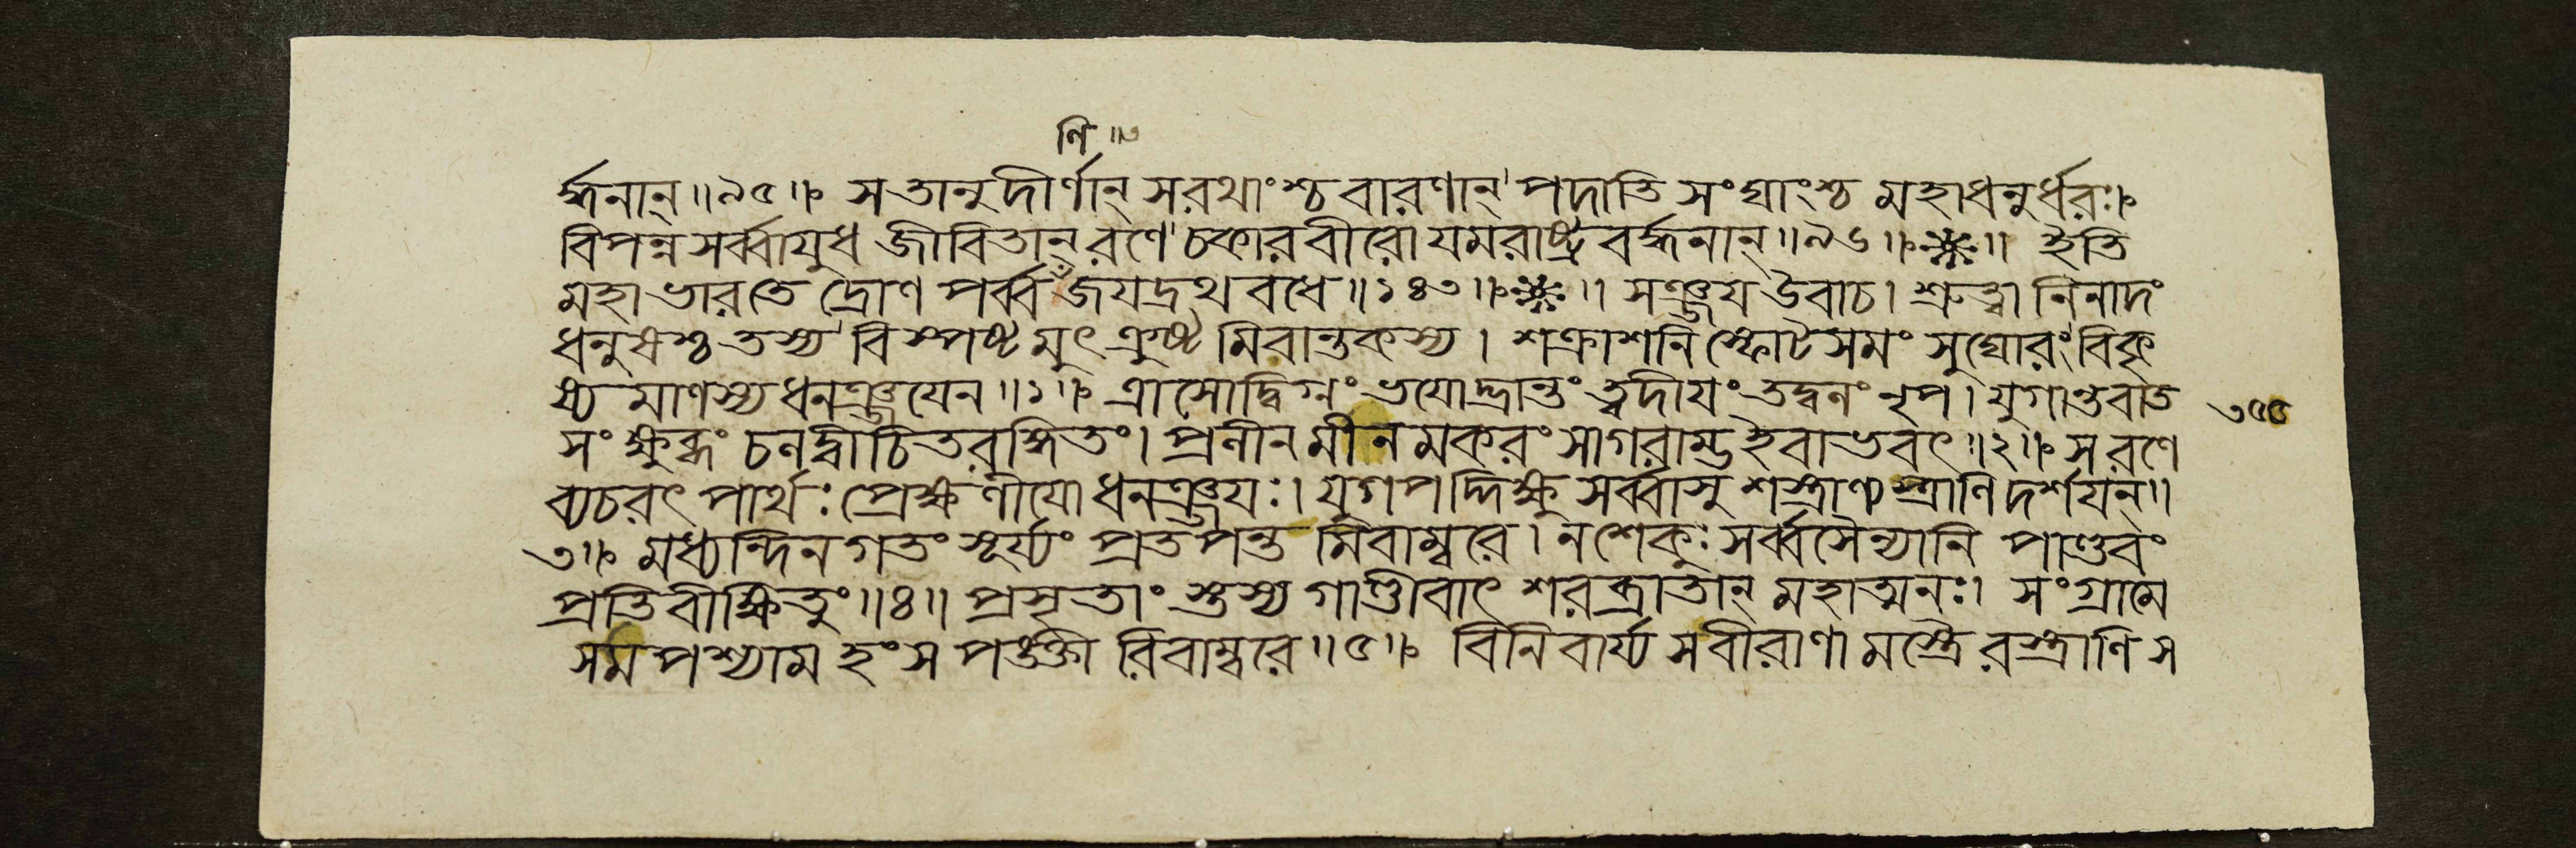 ণি ॥৩
র্দ্ধনান্ ॥৯৫॥ সতানুদীর্ণান্ সরথাংশ্চ বারণান্ পদাতি সংঘাংশ্চ মহাধনুর্ধরঃ।
বিপন্ন সর্ব্বাযুধ জীবিতান্ রণে চকার বীরো যমরাষ্ট্র বর্দ্ধনান্ ॥৯৬॥ ॥ ইতি
মহাভারতে দ্রোণ পর্ব্ব জযদ্রথ বধে ॥১৪৩॥ ॥ সঞ্জয উবাচ। শ্রুত্বা নিনাদং
ধনুষশ্চ তস্য বিস্পষ্ট মুৎক্রুষ্ট মিবান্তকস্য। শক্রাশনি স্ফোটসমং সুঘোরং বিকৃ
ষ্য মাণস্য ধনঞ্জযেন ॥১॥ ত্রাসোদ্বিগ্নং ভযোদ্ভ্রান্তং ত্বদীযং তদ্বলং নৃপ। যুগান্তবাত
৩৫৫
সংক্ষুব্ধং চলদ্বীচিতরঙ্গিতং। প্রলীনমীন মকরং সাগরাম্ভ ইবাভবৎ ॥২॥ স রণে
ব্যচরৎ পার্থঃ প্রেক্ষণীযো ধনঞ্জযঃ। যুগপদ্দিক্ষু সর্ব্বাসু শস্ত্রাণ্যস্ত্রাণি দর্শযন্॥
৩॥ মধ্যন্দিন গতং সূর্য্যং প্রতপন্ত মিবাম্বরে। নশেকুঃ সর্ব্বসৈন্যানি পাণ্ডবং
প্রতিবীক্ষিতুং ॥৪॥ প্রসৃতাংস্তস্য গাণ্ডীবাৎ শরব্রাতান্ মহাত্মনঃ। সংগ্রামে
সমপশ্যাম হংস পঙক্তী রিবাম্বরে ॥৫॥ বিনিবার্য্য সবীরাণা মস্ত্রৈ রস্ত্রাণি স